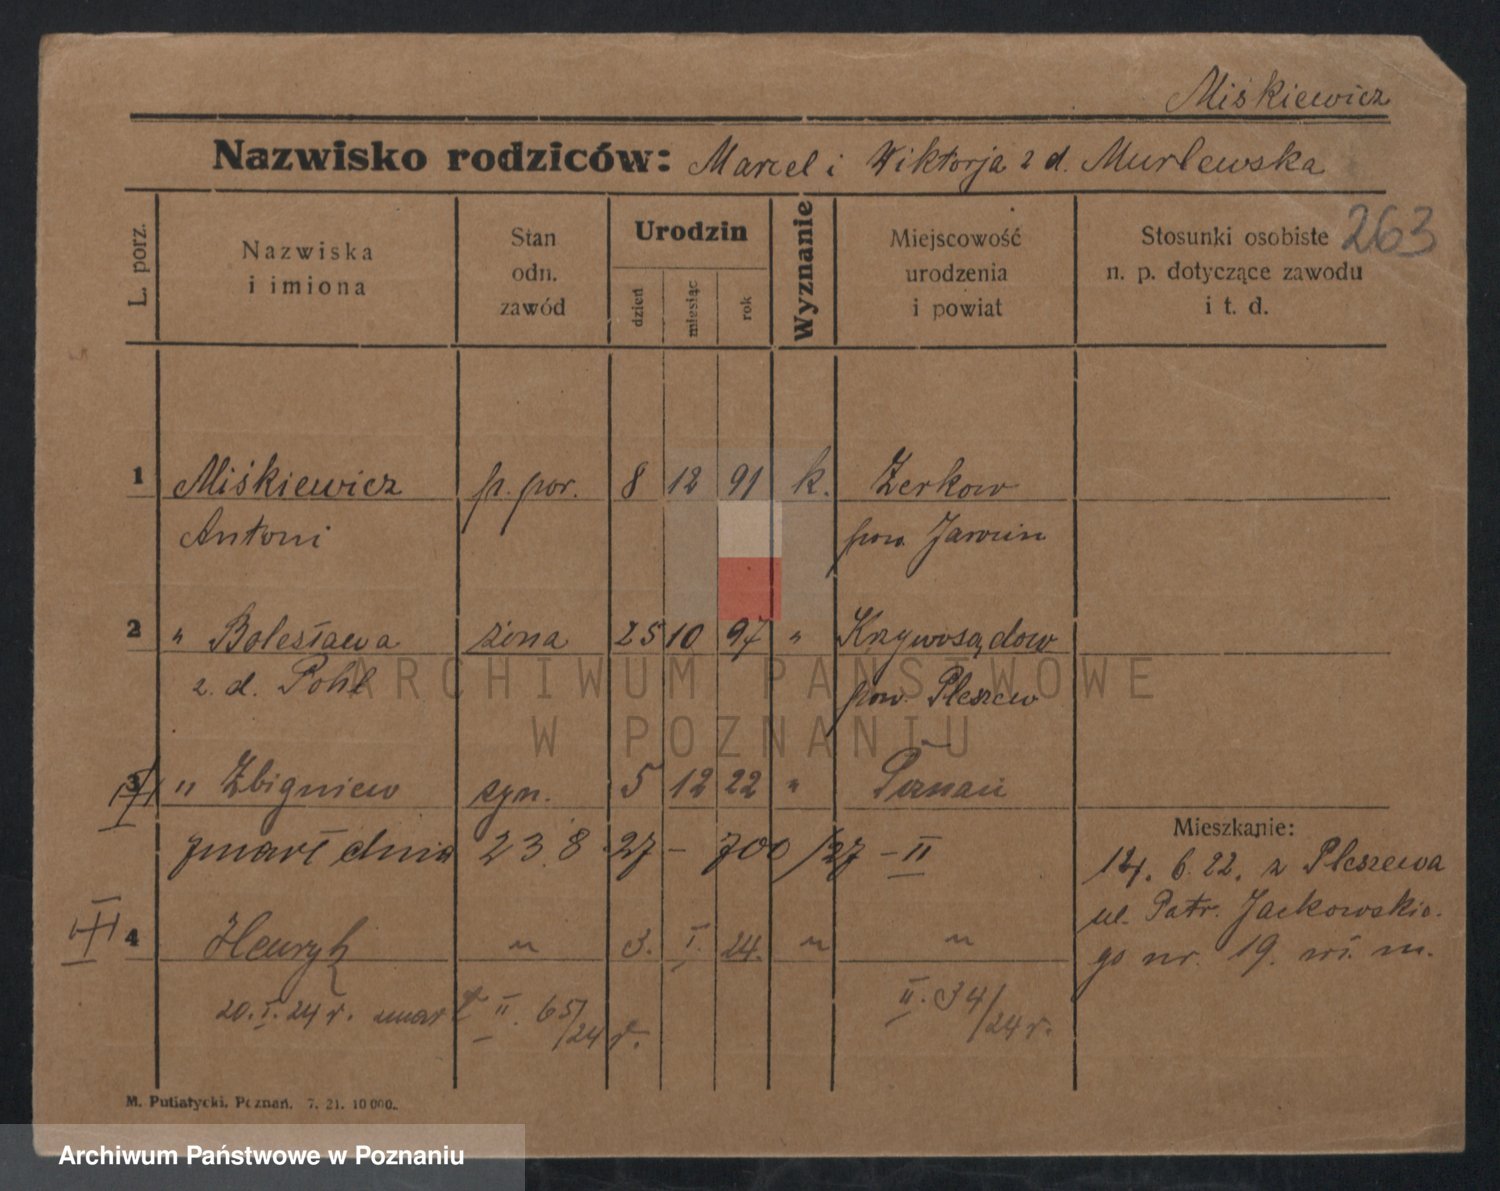 Miśkiewicz
Nazwisko rodziców: Marcel i Wiktorja z d. Murlewska
263
L. porz.
Nazwiska
i imiona
Stan
odn.
zawód
Urodzin
dzień
miesiąc
rok
Wyznanie
Miejscowość
urodzenia
i powiat
Stosunki osobiste
n. p. dotyczące zawodu
i t. d.
1 Miśkiewicz p. por. 8 12 91 k. Żerkow
Antoni pow. Jarocin
2 " Bolesława żona 25 10 97 " Krzywosądow
z. d. Pohl pow. Pleszew
3 " Zbigniew syn. 5 12 22 " Poznań
zmarł dnia 23.8.27 - 700/27 - II
Mieszkanie:
14. 6. 22. z Pleszewa
ul. Patr. Jackowskie-
go nr. 19. wł. m.
4 Henryk " 3. I. 24. " "
20. I. 24 r. umarł II. 65/24 r. II. 34/24 r.
M. Putiatycki, Poznań. 7. 21. 10 000.
ARCHIWUM PAŃSTWOWE
W POZNANIU
Archiwum Państwowe w Poznaniu